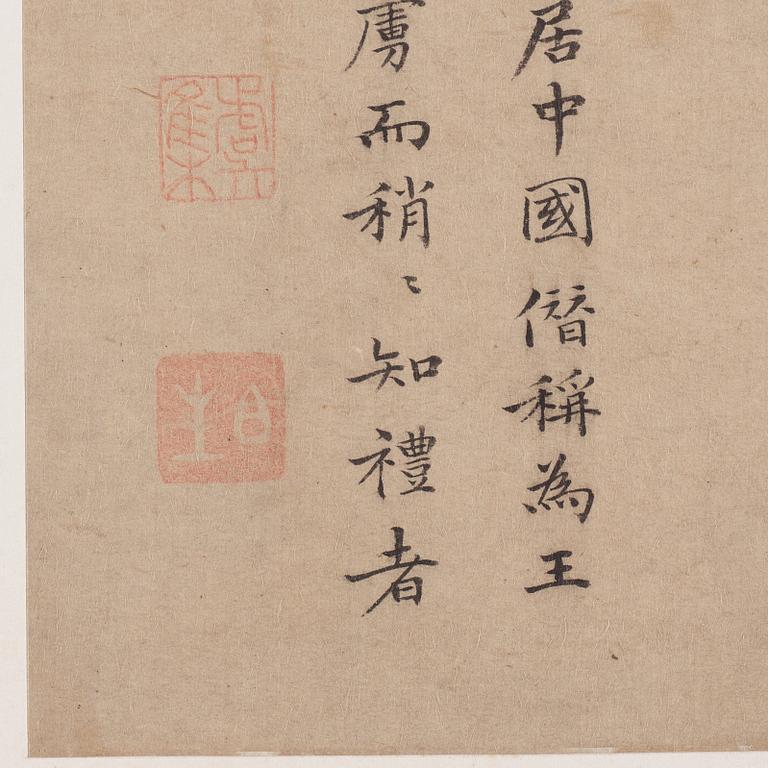 居中國僭稱為王
虜而稍〻知禮者